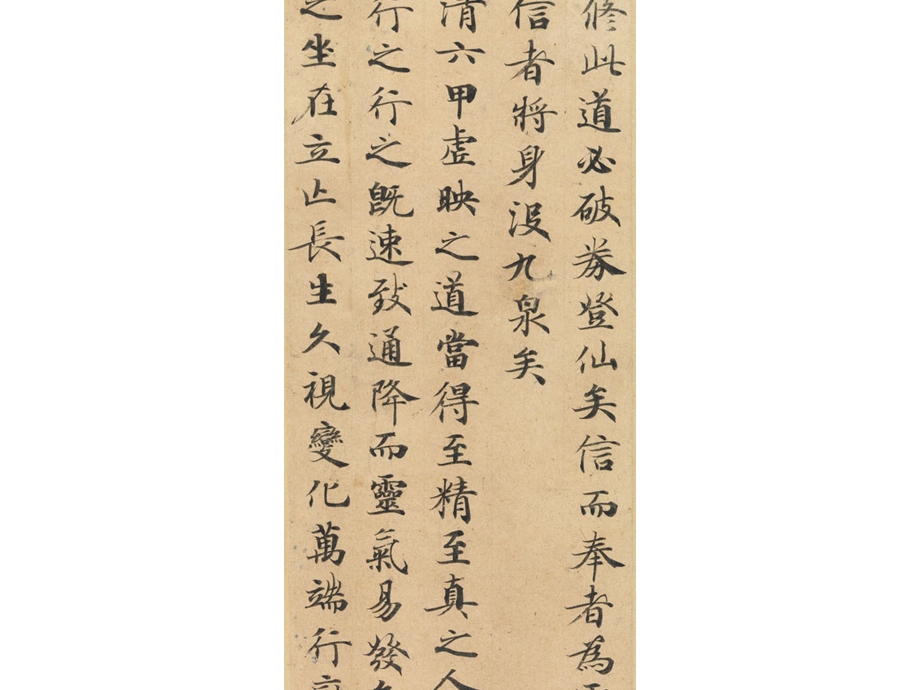 修此道必破券登仙矣信而奉者為
信者將身没九泉矣
清六甲虚映之道當得至精至真之人
行之行之既速致通降而靈氣易發
之坐在立亡長生久視變化萬端行